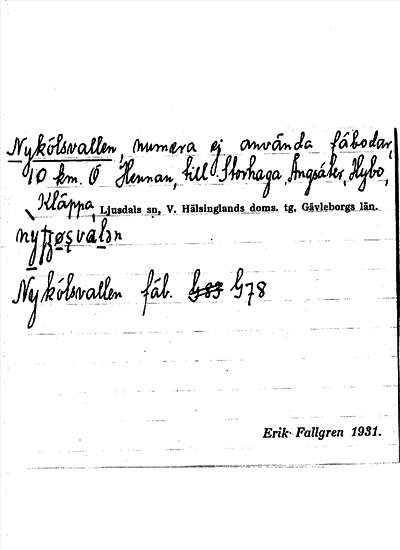 Nykölsvallen, numera ej använda fäbodar,
10 km. Ö Hennan, till Storhaga, Ängsäter, Hybo,
Kläppa, Ljusdals sn, V. Hälsinglands doms. tg, Gävleborgs län.
Nykölsvallen fäb. G83 G78
Erik Fallgren 1931.